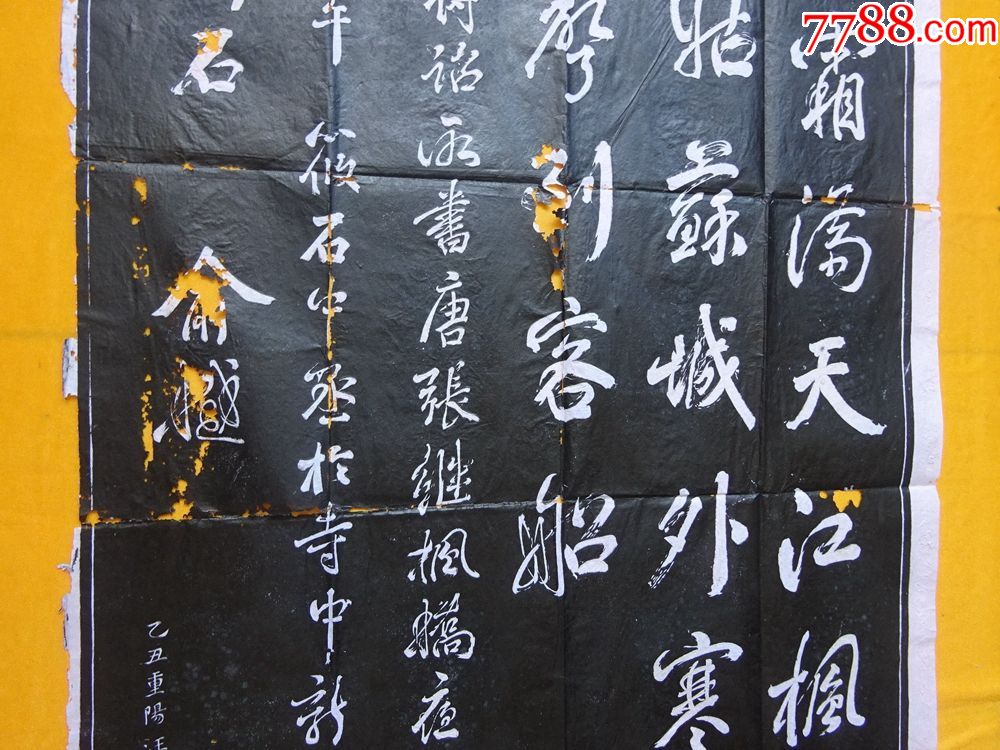 7788.com
霜滿天江楓
姑蘇城外寒
聲到客船
待詔所書唐張繼楓橋夜
午 筱石中丞於寺中新
石 俞樾
乙丑重陽